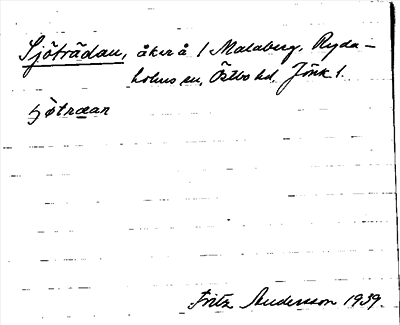 Sjötrådan, åker å 1 Malaberg, Ryda-
holms sn, Östbo hd. Jönk l.
Fritz Andersson 1939.